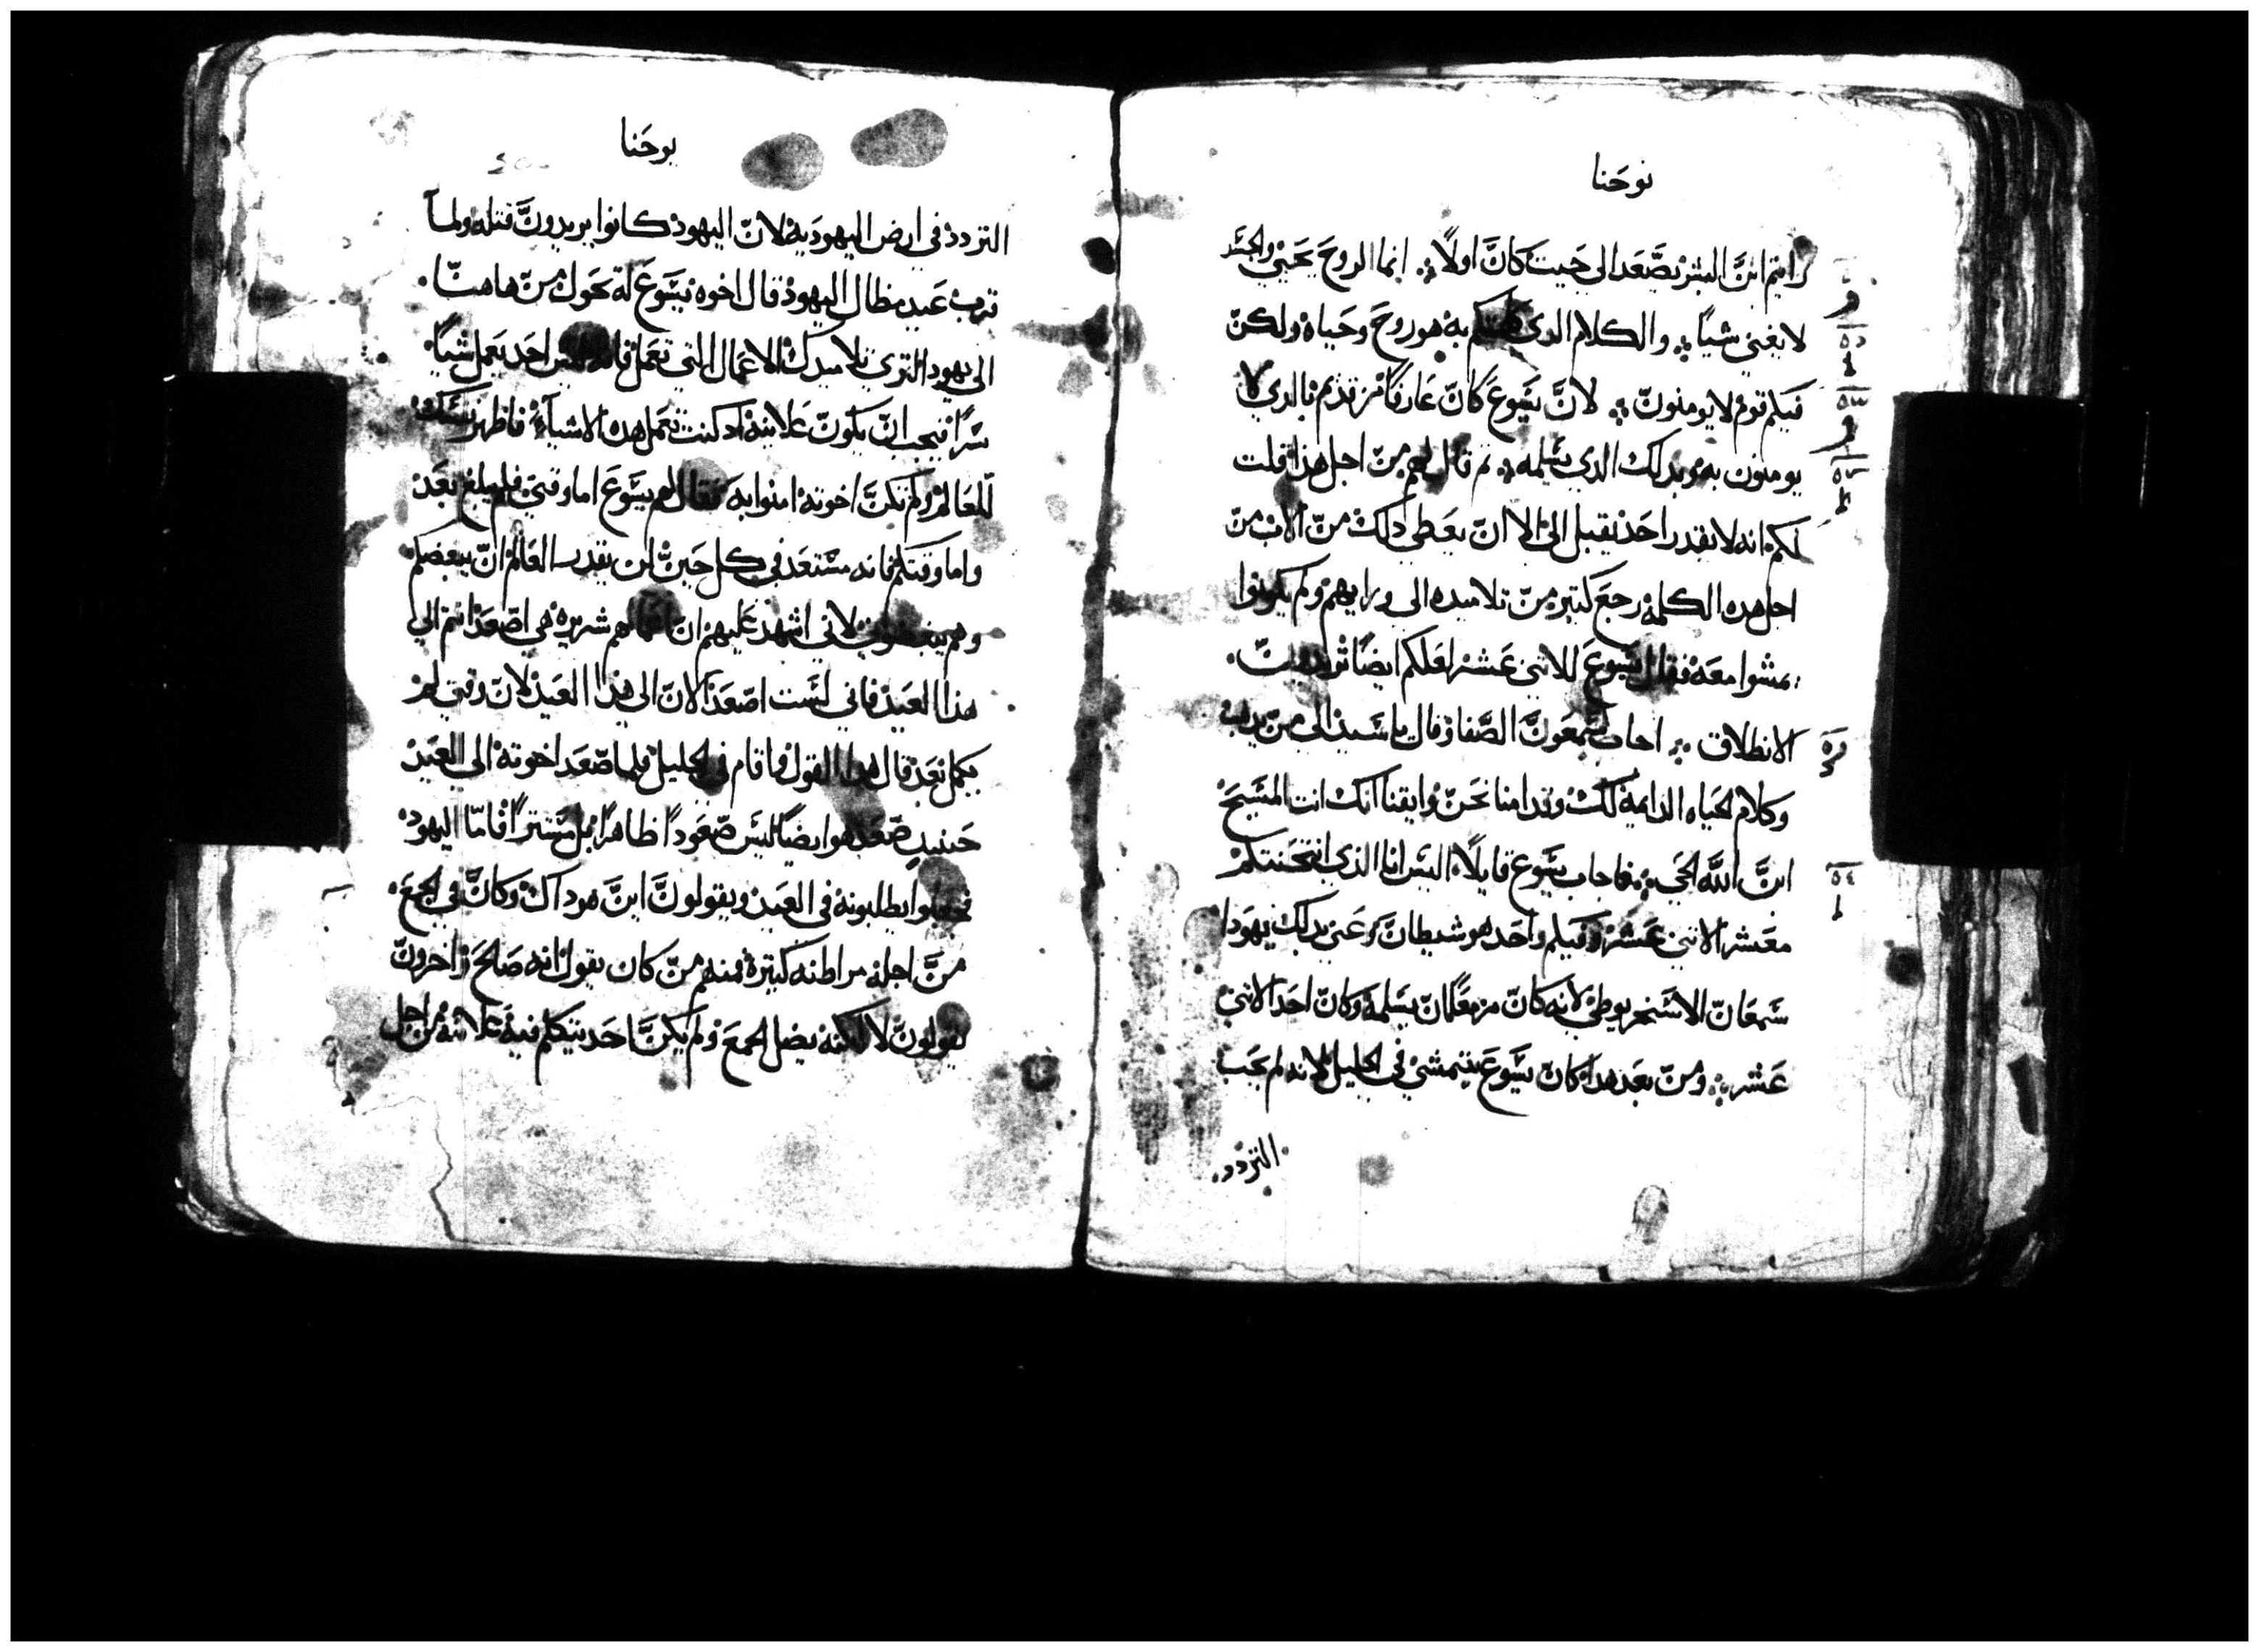 يوحنا
رايتم ابن البشر يصعد الى حيت كان اولا ۞ انما الروح يحيي والجسد
لا يغني شيا ۞ والكلام الدي كلمتكم به هو روح وحياه ولكن
فيكم قوم لا يومنون ۞ لان يسوع كان عارفا مز قديم بالدي لا
يومنون به وبدلك الدي يسلمه ۞ تم قال لهم من اجل هذا قلت
لكم انه لا يقدر احد يقبل الى الا ان يعطي دلك من الاب من
اجل هده الكلمة رجع كتير من تلاميده الى ورايهم ولم يكونوا
يمشوا معه فقال يسوع للاتني عشر لعلكم ايضا تريدون
الانطلاق ۞ اجاب سمعون الصفا وقال يا سيد الى من ندهب
وكلام الحياه الدايمة لك وقد امنا نحن وايقنا انك انت المسيح
ابن الله الحي ۞ فاجاب يسوع قايلا اليس انا الدي انتخبتكم
معشر الاتني عشر وفيكم واحد هو شيطان عنى بدلك يهودا
سمعان الاسخريوطي لانه كان مزمعا ان يسلمه وكان احد الاتني
عشر ۞ ومن بعد هدا كان يسوع يتمشي في الجليل لانه لم يحب
التردد
٥٢
٥٣
٥٤
يوحنا
التردد في ارض اليهودية لان اليهود كانوا يريدون قتله ولما
قرب عيد مظال اليهود قال اخوه يسوع له تحول من هاهنا
الى يهودا لتري تلاميدك الاعمال التي تعمل فانه ليس احد يعمل شيا
سرا فيحب ان يكون علانية اد كنت تعمل هده الاشيا فاظهر نفسك
للعالم ولم تكن اخوته امنوا به فقال لهم يسوع اما وقتي فلم يبلغ بعد
واما وقتكم فانه مستعد في كل حين لن يقدر العالم ان يبغضكم
وهم يبغضوني لاني اشهد عليهم ان اعمالهم شريره هي اصعدا انتم الي
هذا العيد فاني لست اصعد الان الى هذا العيد لان وقتي لم
يكمل بعد قال هدا القول واقام في الجليل فلما صعد اخوته الى العيد
حينيد صعد هو ايضا ليس صعودا ظاهرا بل مستترا فاما اليهود
فجعلوا يطلبونه في العيد ويقولون اين هو داك وكان في الجمع
من اجله مراطنه كتيرة فمنهم من كان يقول انه صالح واخرون
يقولون لا لكنه يضل الجمع ولم يكن احد يتكلم فيه علانية من اجل